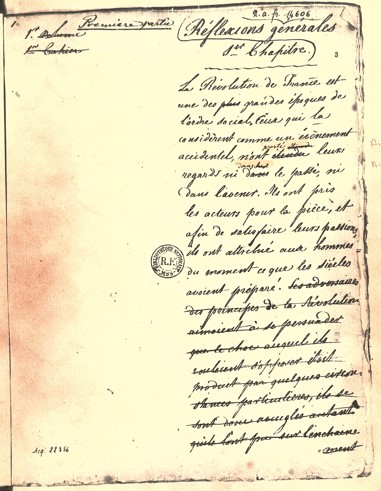 n. a. fr. 14606
1.
Première partie
1er Volume
1er Cahier
(Réflexions générales
1er Chapitre.)
3
La Révolution de France est
une des plus grandes époques de
l'ordre social, Ceux qui la
considèrent comme un événement
accidentel, n'ont porté
étendu leurs
dans
regards ni dans le passé, ni
dans l'avenir. Ils ont pris
les acteurs pour la pièce, et
afin de satisfaire leurs passions,
ils ont attribué aux hommes
du moment ce que les siècles
avoient préparé. Les adversaires
des principes de la Révolution
aimoient à se persuader
que le choc auquel ils
vouloient s'opposer étoit
produit par quelques circon
stances particulières, ils se
sont donc aveuglés autant
qu'ils l'ont pu sur l'enchaine
ment
BIBLIOTHÈQUE NATIONALE
R.F.
Acq. 22836